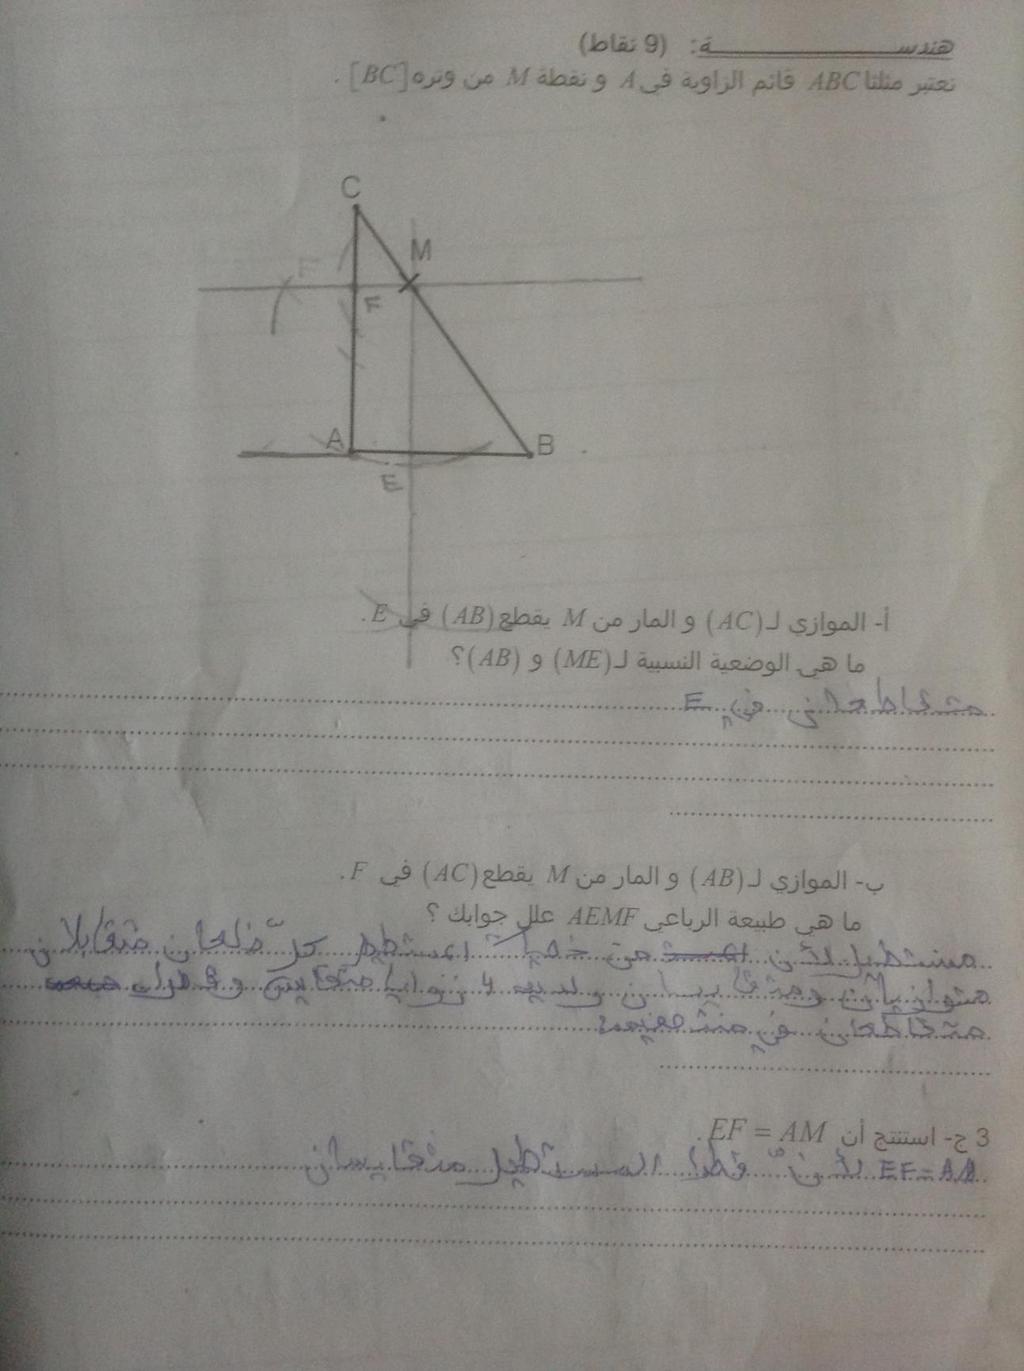 هندســـــــــــــــــة: (9 نقاط)
نعتبر مثلثا ABC قائم الزاوية في A و نقطة M من وتره [BC].
C
M
F
F
A
B
E
أ- الموازي لـ (AC) و المار من M يقطع (AB) في E.
ما هي الوضعية النسبية لـ (ME) و (AB)؟
متقاطعان في E
ب- الموازي لـ (AB) و المار من M يقطع (AC) في F.
ما هي طبيعة الرباعي AEMF علل جوابك ؟
مستطيل لأن من المستطيل كل ضلعان متقابلان
متوازيان ومتقايسان ولديه 4 زوايا متقايس و
متقاطعان في منتصفيهما
3 ج- استنتج أن EF = AM.
EF = AM لأن قطرا المستطيل متقايسان